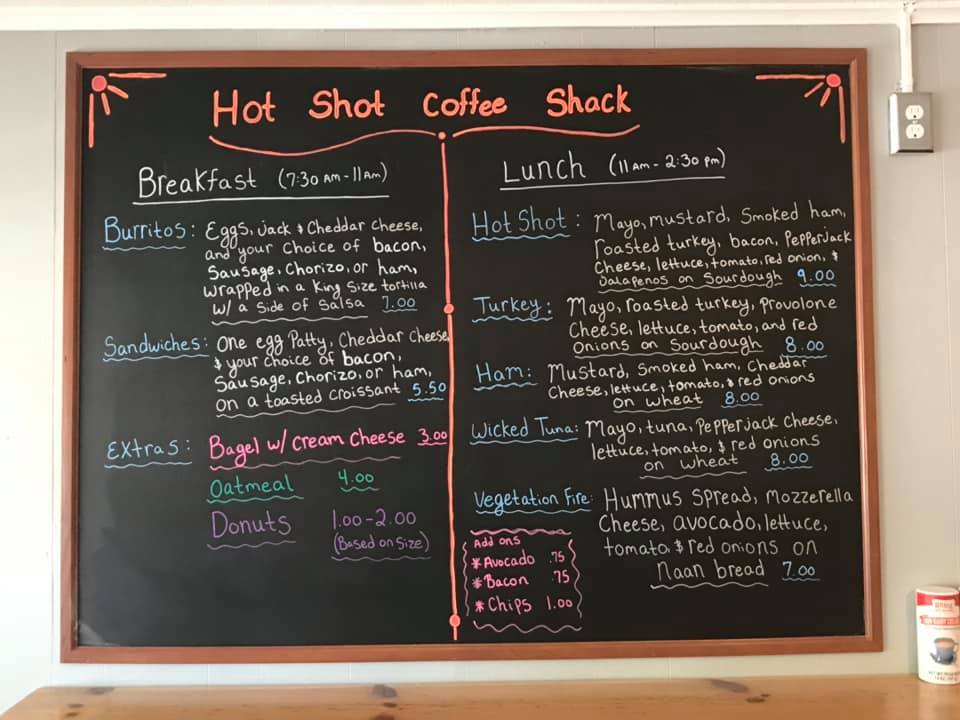 Hot Shot Coffee Shack
Breakfast (7:30 AM - 11 AM)
Burritos: Eggs, Jack & Cheddar Cheese,
and your choice of bacon,
Sausage, Chorizo, or ham,
wrapped in a King Size tortilla
w/ a side of Salsa 7.00
Sandwiches: One egg Patty, Cheddar Cheese
& your choice of bacon,
Sausage, Chorizo, or ham,
on a toasted croissant 5.50
Extras: Bagel w/ cream cheese 3.00
Oatmeal 4.00
Donuts 1.00-2.00
(Based on Size)
Lunch (11 AM - 2:30 pm)
Hot Shot: Mayo, mustard, Smoked ham,
roasted turkey, bacon, Pepperjack
Cheese, lettuce, tomato, red onion, &
Jalapenos on Sourdough 9.00
Turkey: Mayo, roasted turkey, Provolone
Cheese, lettuce, tomato, and red
Onions on Sourdough 8.00
Ham: Mustard, Smoked ham, Cheddar
Cheese, lettuce, tomato, & red onions
on wheat 8.00
Wicked Tuna: Mayo, tuna, Pepperjack Cheese,
lettuce, tomato, & red onions
on wheat 8.00
Vegetation Fire: Hummus Spread, mozzerella
Cheese, avocado, lettuce,
tomato, & red onions on
Naan bread 7.00
Add ons
*Avocado .75
*Bacon .75
*Chips 1.00